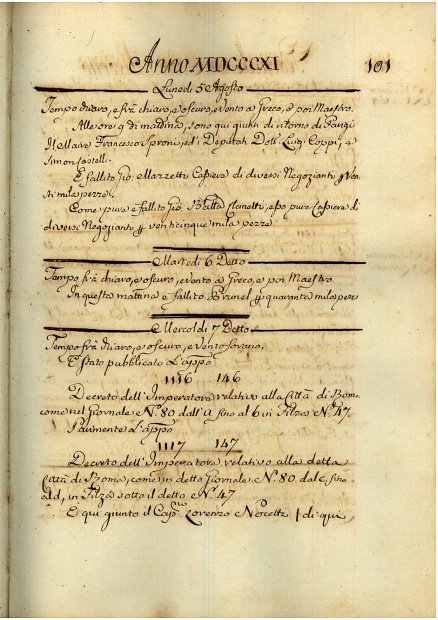 Anno MDCCCXI 101
Lunedi 5 Agosto
Tempo chiaro, e frà chiaro, e oscuro, e vento a Greco, e poi Maestro.
Alle ore 9 di mattina, sono qui giunti di ritorno di Parigi
Il Maire Francesco Sproni, ed i Deputati Dott. Luigi Coppi, e
Simon Castelli.
È fallito Gio. Marzetti Casiere di diversi Negozianti p Ven
ti mila pezze.
Come pure è fallito Gio. Batta , casiere di
diversi Negozianti p venticinque mila pezze.
Martedi 6 Detto
Tempo frà chiaro, e oscuro, e vento a Greco, e poi Maestro.
In questa mattina è fallito Brunel p quaranta mila peze
Mercoldi 7 Detto
Tempo frà chiaro, e oscuro, e vento
È stato pubblicato L'appo
1116 146
Decreto dell'Imperatore relativo alla Città di
come nel Giornale N. 80 dall' a fino al 6 in Filza N. 47.
Parimente L'appo
1117 147
Decreto dell'Imperatore relativo alla detta
Città di , come in detto Giornale N. 80 dal c, fino
al d, in Filza sotto il detto N. 47
È qui giunto il Cap. Lorenzo Nocetti di qui